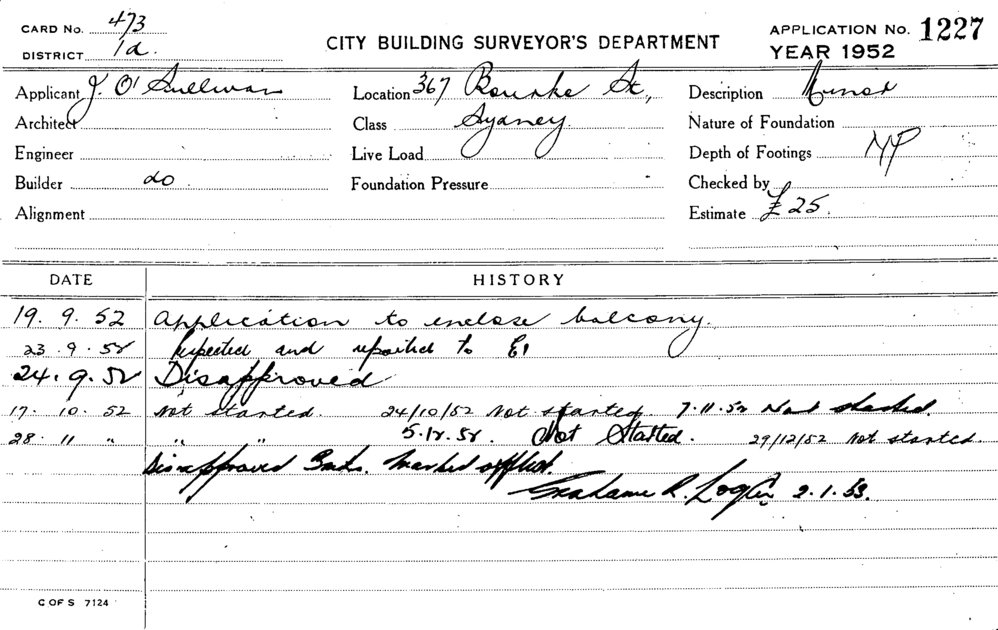 CARD No. 473
DISTRICT 1a.
CITY BUILDING SURVEYOR'S DEPARTMENT
APPLICATION No. 1227
YEAR 1952
Applicant J. O'Sullivan Location 367 Bourke St., Description Minor
Architect Class Sydney Nature of Foundation
Engineer Live Load Depth of Footings
Builder do Foundation Pressure Checked by
Alignment Estimate £25.
DATE HISTORY
19. 9. 52 Application to enclose balcony.
23. 9. 52 Inspected and reported to
24. 9. 52 Disapproved
17. 10. 52 Not started. 24/10/52 Not started. 7.11.52 Not started.
28. 11 " " " 5.12.52. Not Started. 29/12/52 Not started.
Disapproved marked
Grahame R. 2.1.53.
C OF S 7124